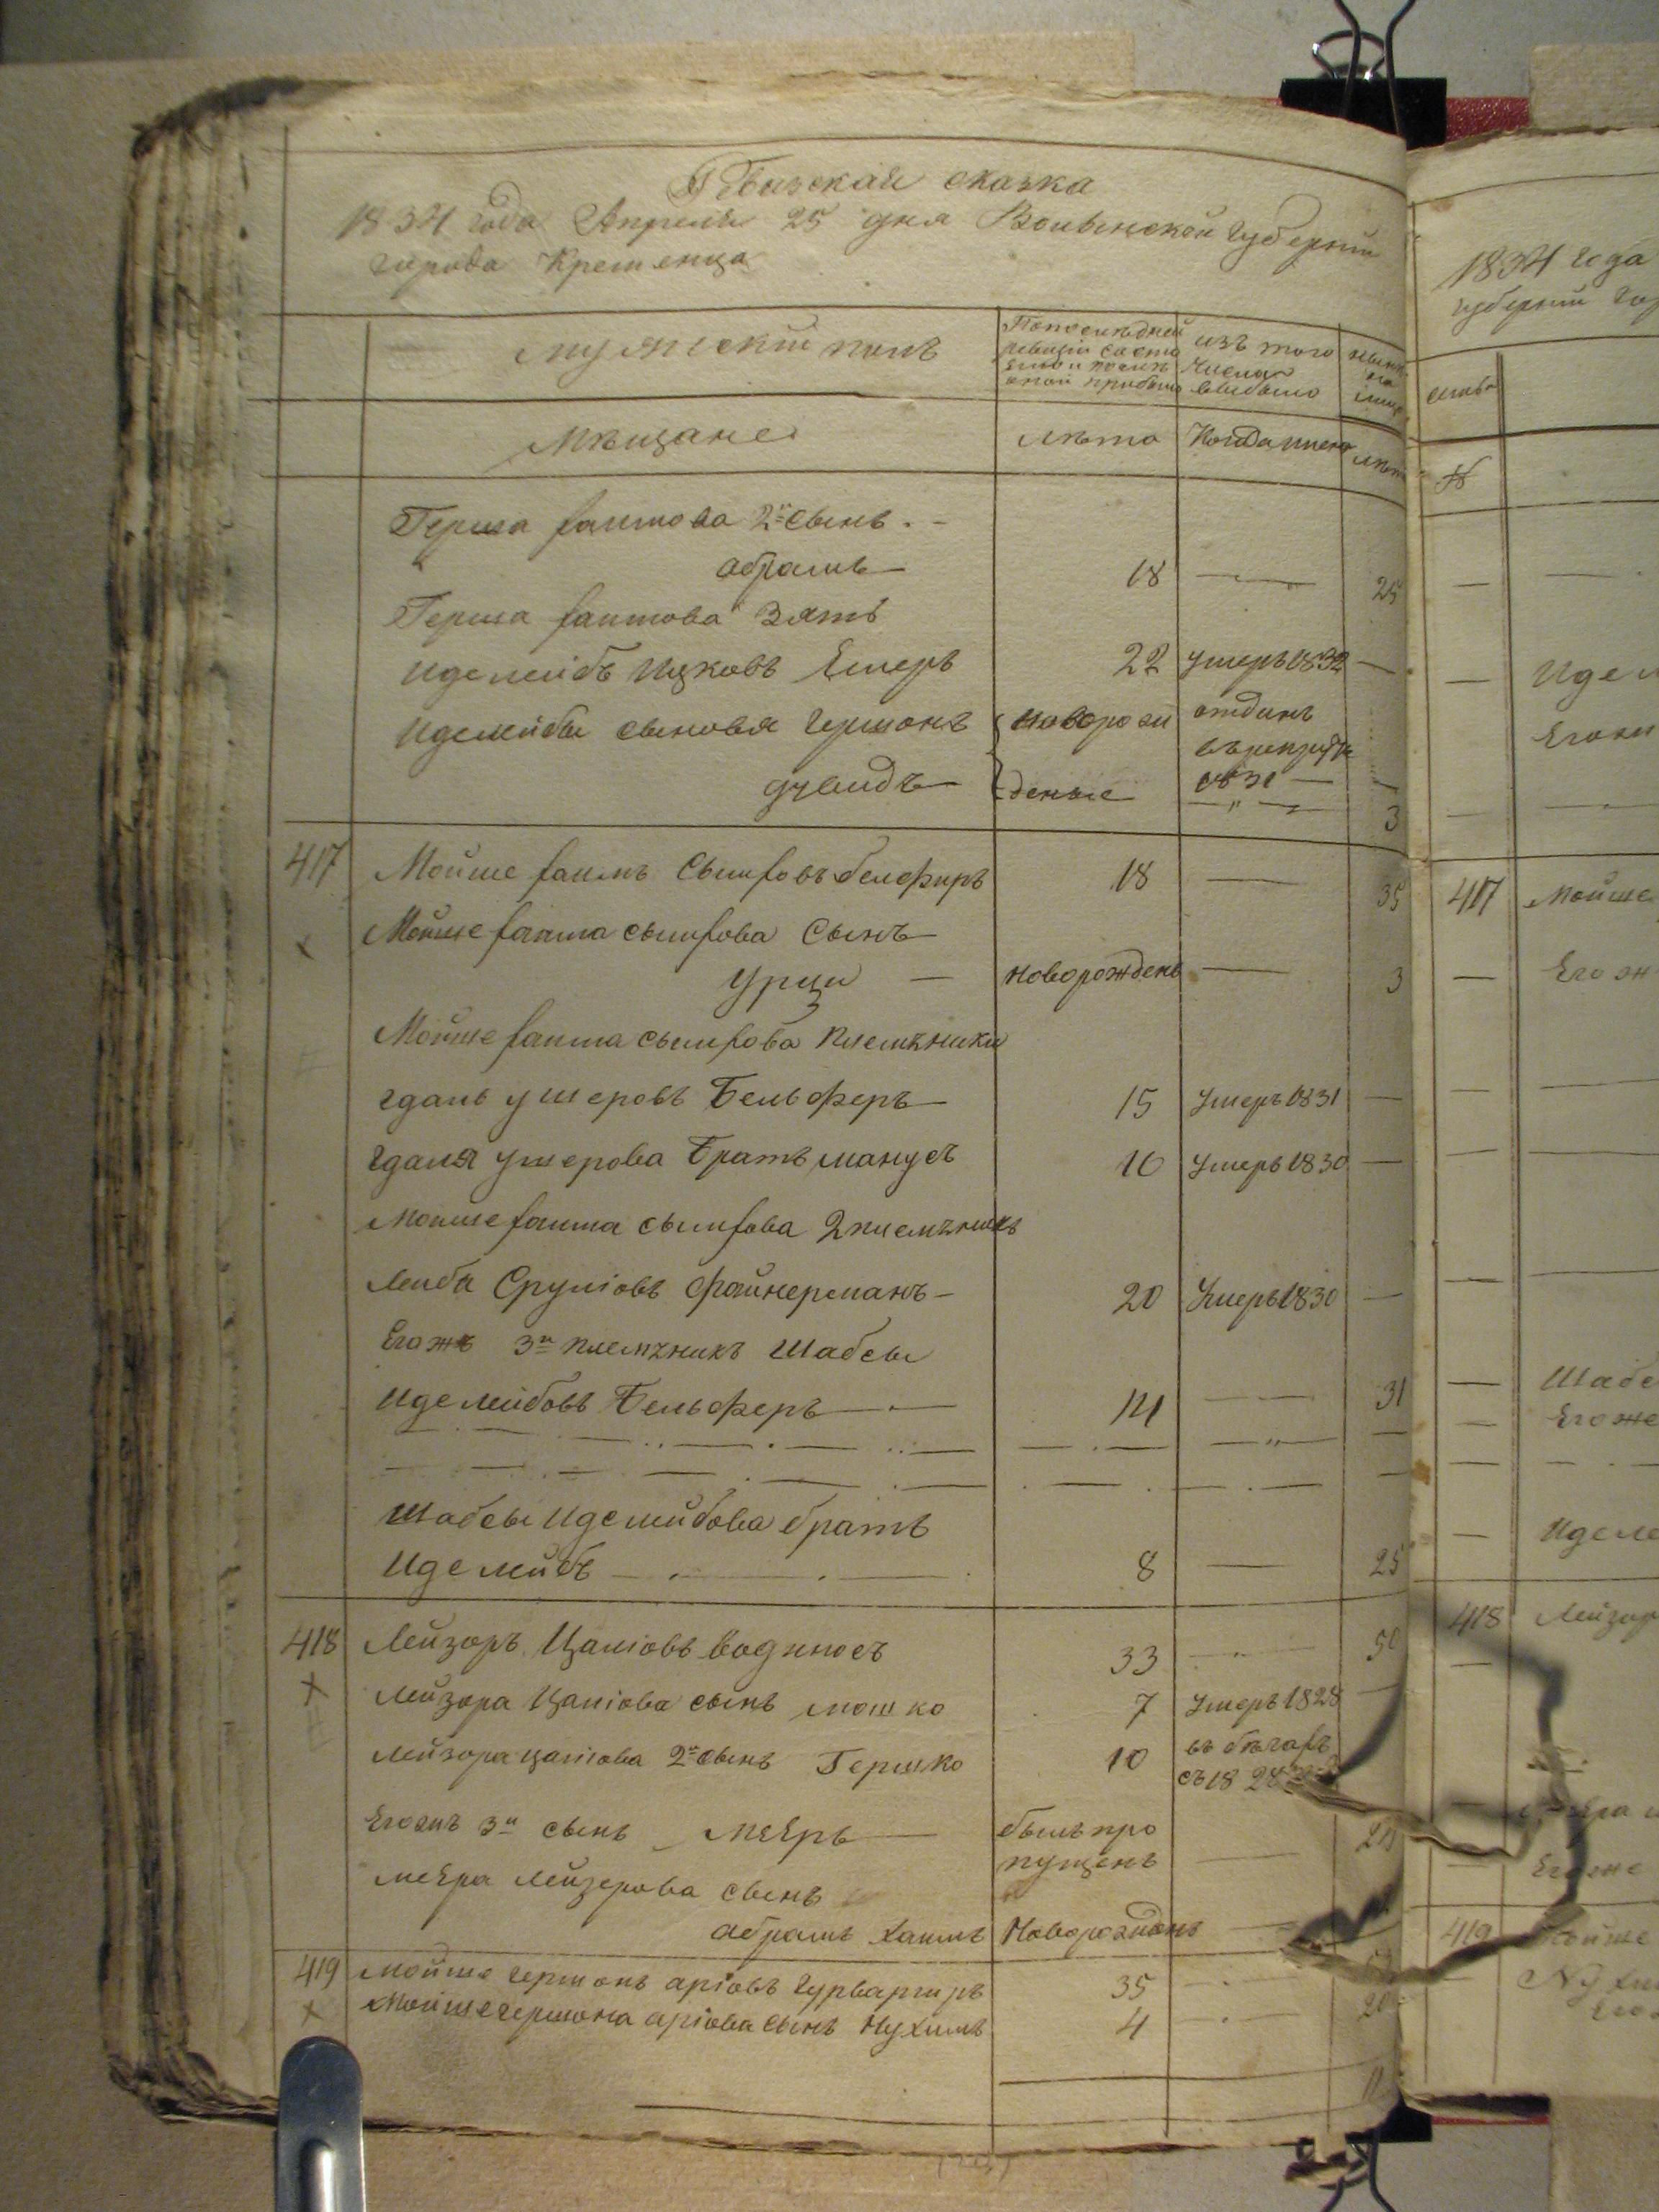 Ревизская сказка
1834 года Апреля 25 дня Волынской Губерніи
города Кременца
мужескій полъ
По последней
ревизіи состо
яло и после
оной прибыло
изъ того
числа
выбыло
ныне
на
лицо
мѣщане
лѣта
Когда имено
лѣт
Герша хаимова 2й сынъ
абрамъ
18
25
Герша хаимова зять
Иделейбъ Ицковъ Емеръ
22
умеръ 1832
Иделейбы сыновья Гершонъ
новорож
отданъ
въ рекруты
1831
дувидъ
деные
3
417
Мойше хаимъ сымховъ белферъ
18
35
Мойше хаима сымхова сынъ
Урци
новорожденъ
3
Мойше хаима сымхова племѣники
гдаль ушеровъ Бельферъ
15
умеръ 1831
гдаля ушерова братъ манусъ
10
умеръ 1830
Мойше хаима сымхова 2 племѣникъ
Лейба Сруліовъ файнерманъ
20
Умеръ 1830
Егожъ 3й племѣникъ Шабсы
Иделейбовъ Бельферъ
14
31
Шабсы Иделейбова братъ
Иделейбъ
8
25
418
Лейзоръ Цаліовъ водыносъ
33
50
Лейзора Цаліова сынъ мошко
7
Умеръ 1828
Лейзора цаліова 2й сынъ Гершко
10
въ бѣгахъ
съ 1828
Егожъ 3й сынъ меЕръ
былъ про
пущенъ
меЕра Лейзерова сынъ
абрамъ хаимъ
Новорожденъ
419
мойше гершонъ аріовъ Гурваргиръ
35
Мойше гершона аріова сынъ Нухимъ
4
20
1834 года
губерніи гор
семья
№
Идел
Егожъ
417
мойше
Его ж
Шабс
Егоже
Иделе
418
Лейзор
Егоже
419
Мойше
Нухим
Его